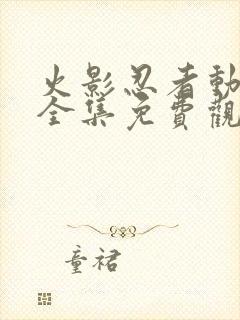 火影忍者動
全集免費觀
童裙